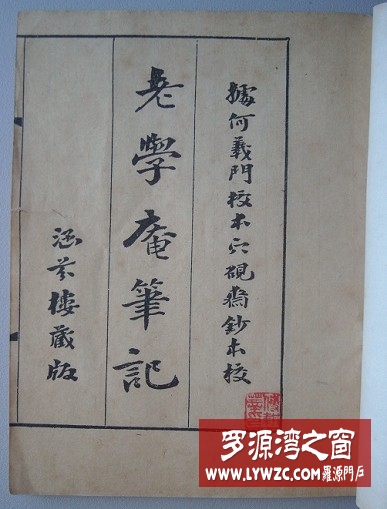 據何義門校本穴硯齋鈔本校
老學庵筆記
涵芬樓藏版
罗源湾之窗
WWW.LYWZC.COM 羅源門戶